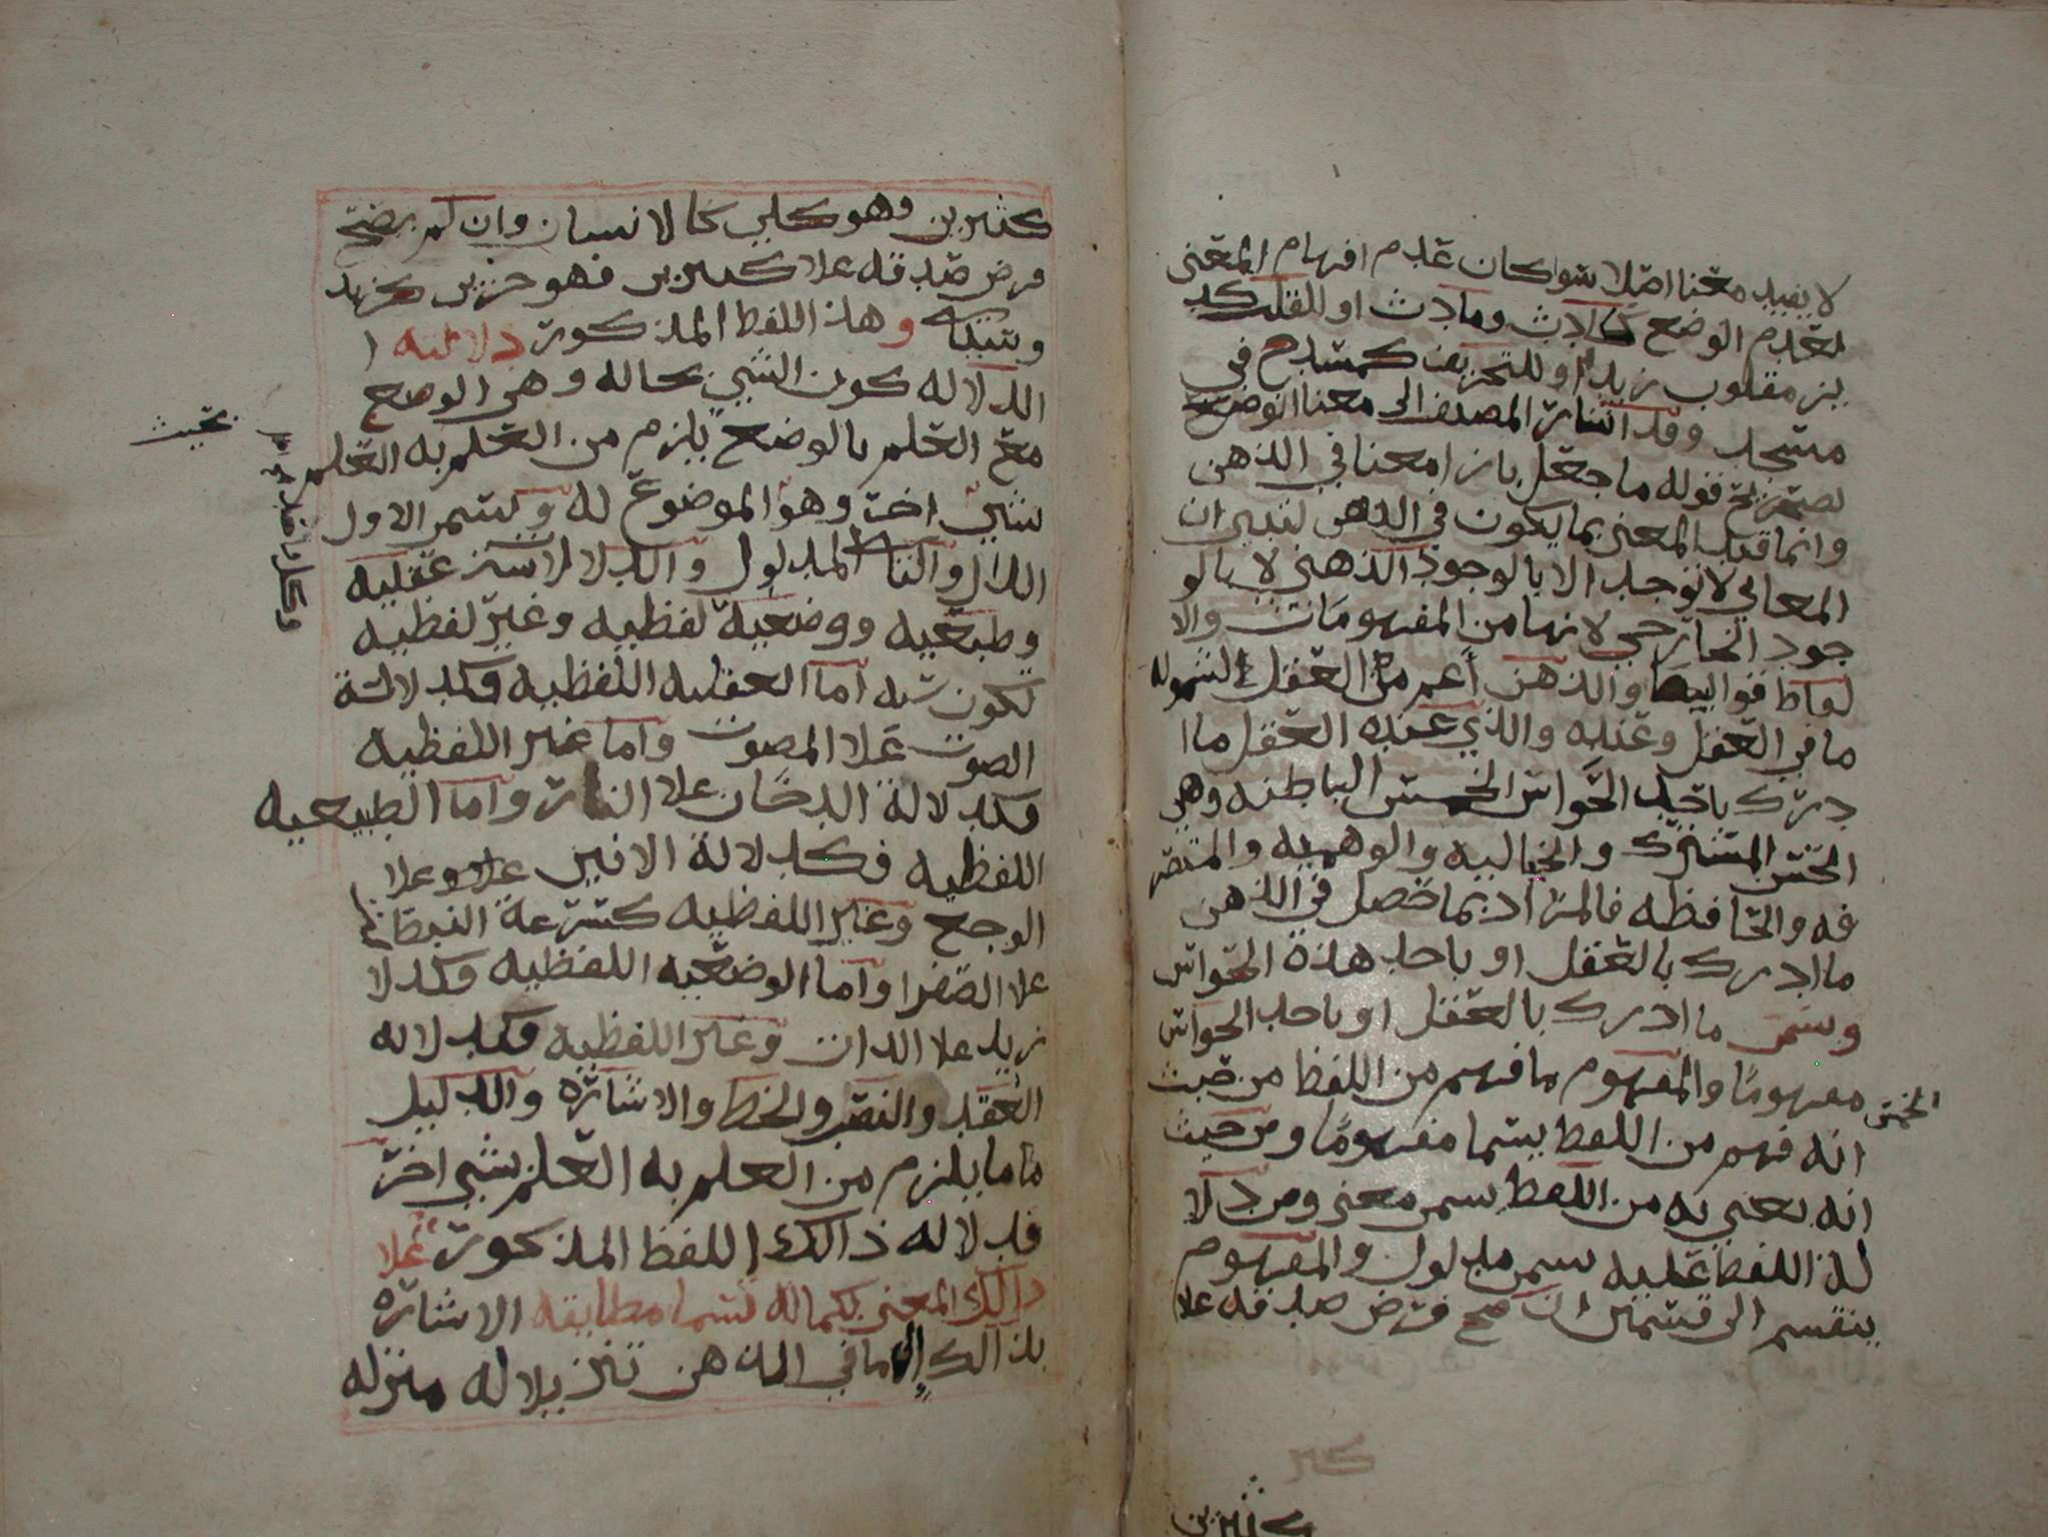 لا يفيد معنا اصلا سوا كان عدم افهام المعنى
لعدم الوضع كادث ومادث او للقلب كد
يز مقلوب زيد او للتحريف كمشدح في
مسجد وقد اشار المصنف الى معنا الوضع
قوله ما جعل بازا معنا في الذهن
وانما قيد المعنى بما يكون في الذهن ان
المعاني لا توجد الا بالوجود الذهني لا بالو
جود الخارجي لانها من المفهومات والا
لفاظ قوالبها والذهن اعم من العقل لشموله
ما في العقل وعنده والذي عنده العقل ما ا
درك باحد الحواس الخمس الباطنه وهي
الحس المشترك والخياليه والوهميه والمتصر
فه والحافظه فالمراد بما حصل في الذهن
ما ادرك بالعقل او باحد هذه الحواس
وسمى ما ادرك بالعقل او باحد الحواس
الخمس مفهومًا والمفهوم ما فهم من اللفظ من حيث
انه فهم من اللفظ يسما مفهومًا ومن حيث
انه يعني به من اللفظ سمى معنى ومن دلا
لة اللفظ عليه سمى مدلول والمفهوم
ينقسم الى قسمين ان صح فرض صدقه علا
كثيرين
كثيرين وهو كلي كالانسان وان لم يصح
فرض صدقه علا كثيرين فهو جزيي كزيد
وهذا اللفظ المذكور دلالته
الدلاله كون الشي بحاله وهي الوضع
مع العلم بالوضع يلزم من العلم به العلم
بشي اخر وهو الموضوع له ويسمى الاول
الدال والثاني المدلول والدلالة عقليه
وطبعيه ووضعية لفظيه وغير لفظيه
تكون سته اما العقليه اللفظيه فكدلالة
الصوت علا المصوت واما غير اللفظيه
فكدلالة الدخان علا النار واما الطبيعيه
اللفظيه فكدلالة الانين علا
الوجع وغير اللفظيه كسرعة النبضان
علا الصفرا واما الوضعيه اللفظيه فكدلا
زيد علا الذات وغير اللفظيه فكدلاله
العقد والنصب والخط والاشاره والدليل
ما يلزم من العلم به العلم بشي اخر
فدلاله ذالك اللفظ المذكور علا
ذالك المعنى بكماله تسما مطابقه الاشاره
بذالك الى ما في الذهن تنزيلا له منزله